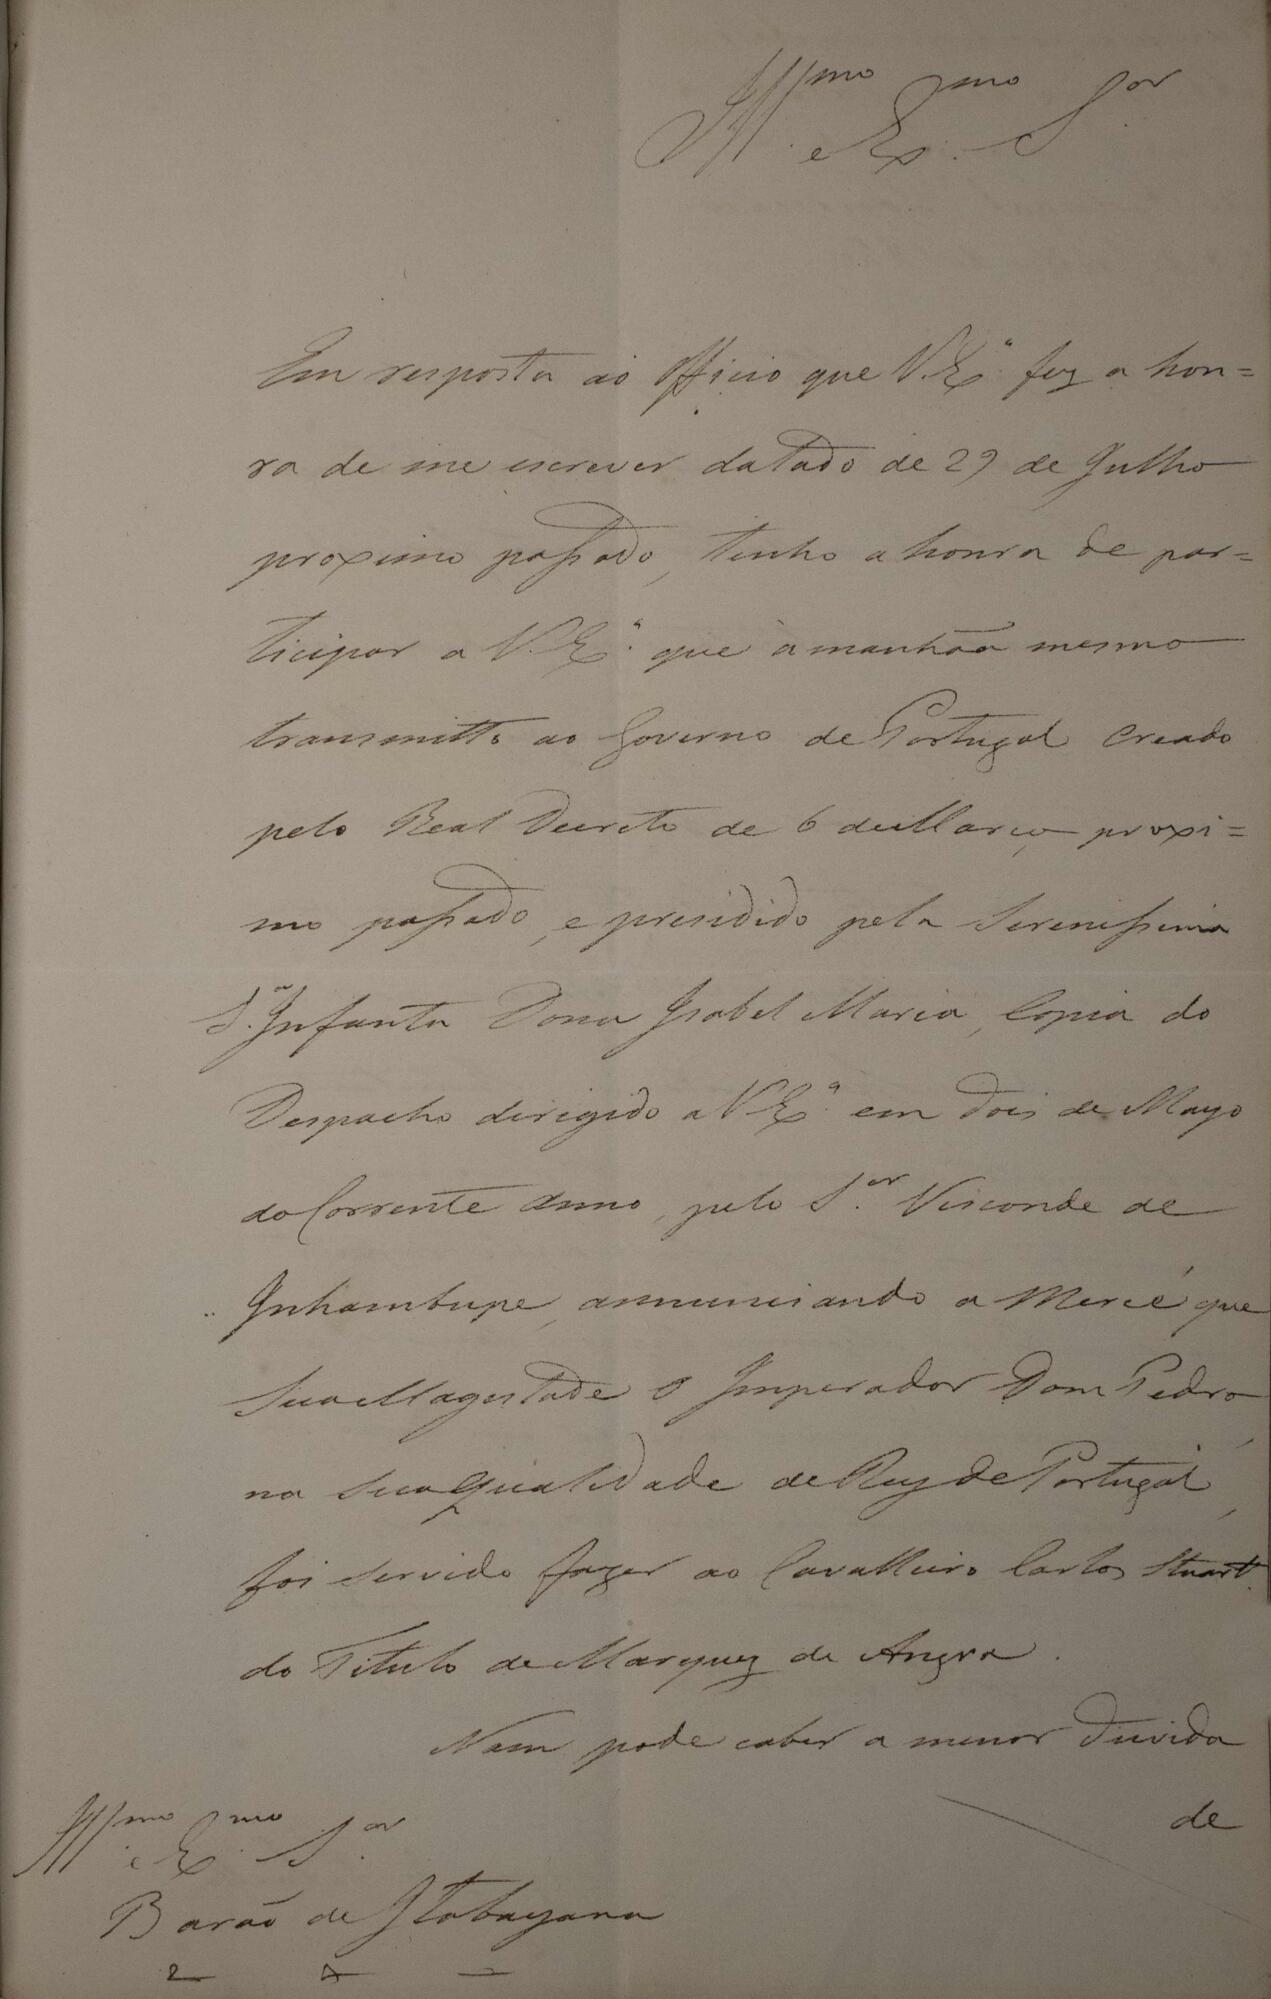 Ill.mo e Ex.mo S.or
Em resposta ao officio que V. Ex.a fez a hon=
ra de me escrever datado de 29 de Julho
proximo passado, tenho a honra de par=
ticipar a V. Ex.a que amanhãa mesmo
transmitto ao Governo de Portugal creado
pelo Real Decreto de 6 de Março proxi=
mo passado, e presidido pela Serenissima
S.a Infanta Dona Isabel Maria, Copia do
Despacho dirigido a V Ex.a em dois de Mayo
do Corrente Anno, pelo S.or Visconde de
Inhambupe, annunciando a Mercé que
Sua Magestade o Imperador Dom Pedro,
na sua qualidade de Rey de Portugal,
foi servido fazer ao Cavalleiro Carlos Stuart
do Titulo de Marquez de Angra.
Nam pode caber a menor duvida
de
Ill.mo e Ex.mo S.or
Barão de Itabayana